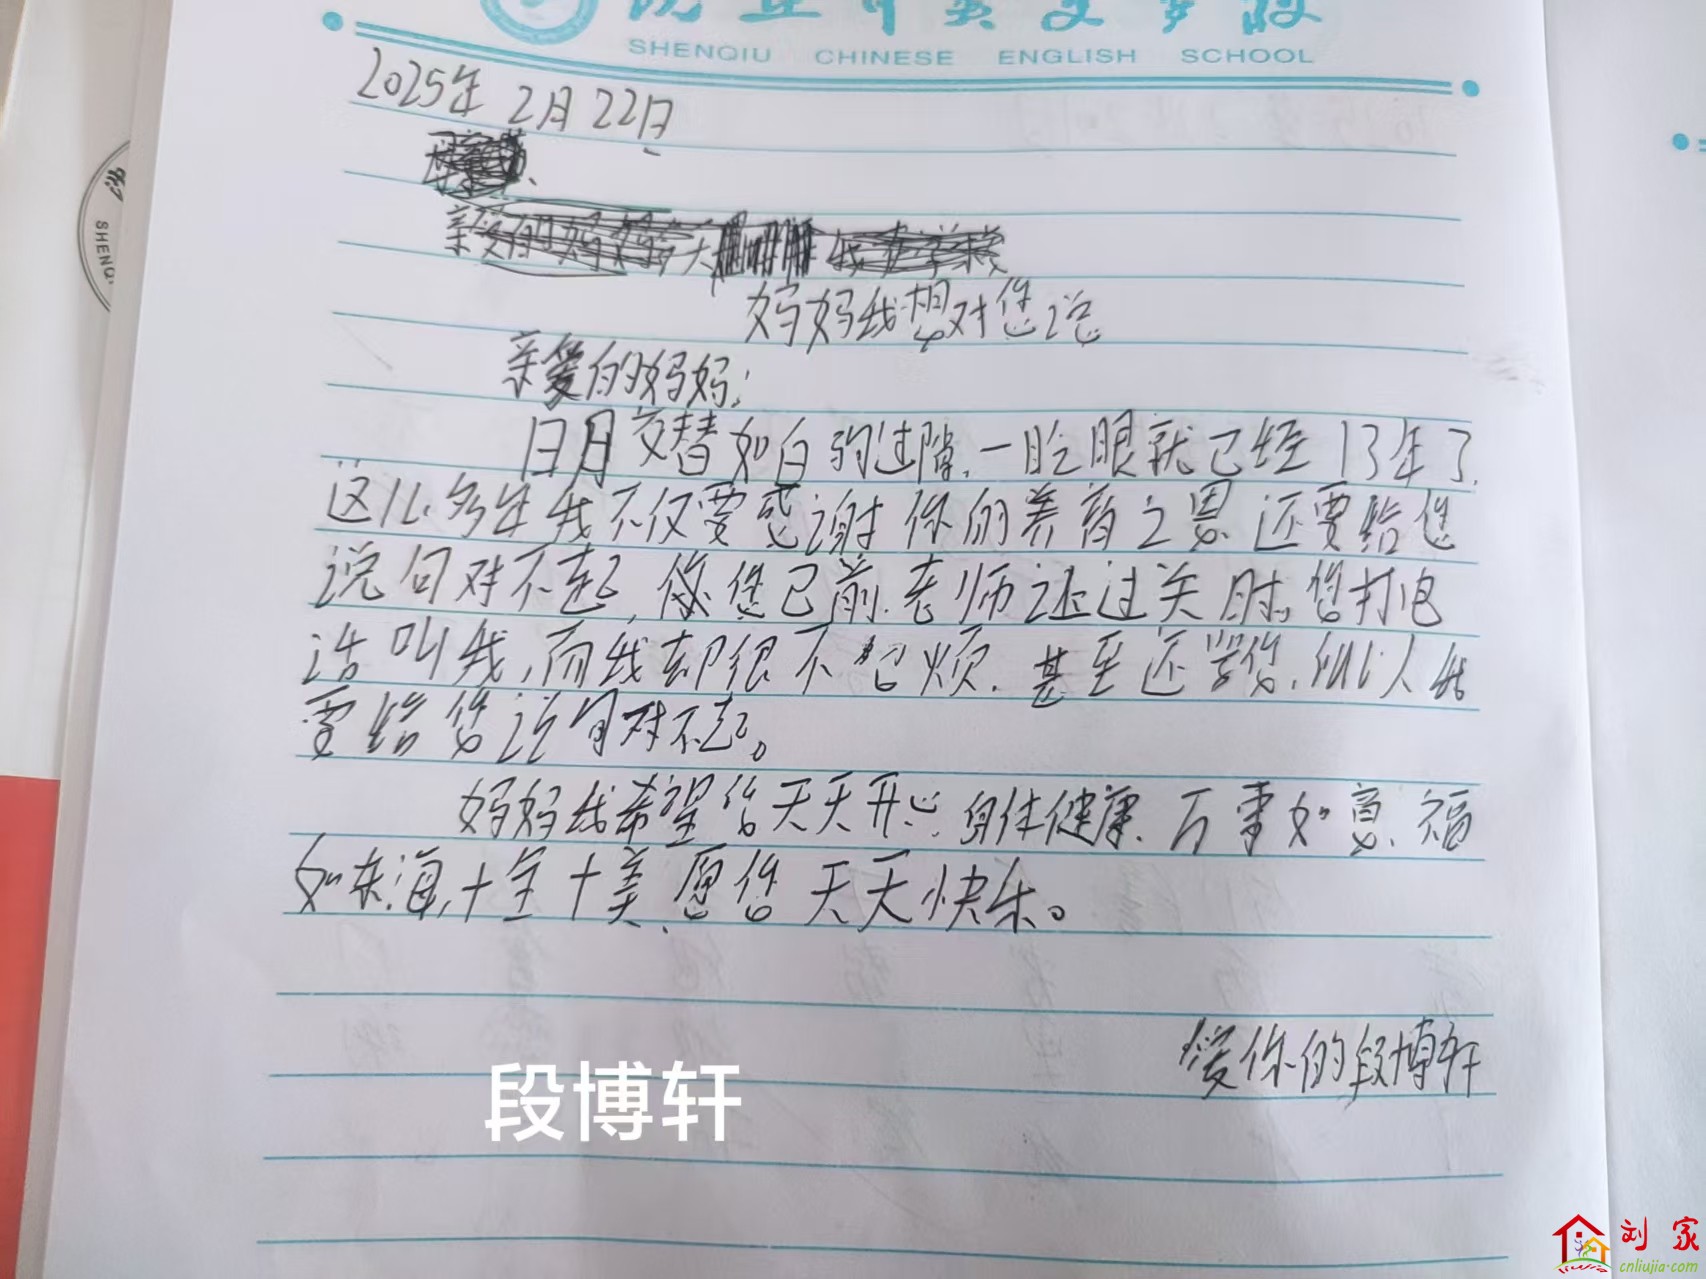 SHENQIU CHINESE ENGLISH SCHOOL
2025年 2月22日
妈妈我想对您说
亲爱的妈妈:
日月交替如白驹过隙,一眨眼就已经13年了,
这么多年我不仅要感谢你的养育之恩 还要给您
说句对不起, 您已前,老师让过关时,您打电
话叫我,而我却很不 烦,甚至还 您,所以人我
要给您说句对不起。
妈妈我希望您天天开心,身体健康,万事如意,福
如东海,十全十美,愿您天天快乐。
爱你的段博轩
段博轩
刘家
cnliujia.com
SHENQ